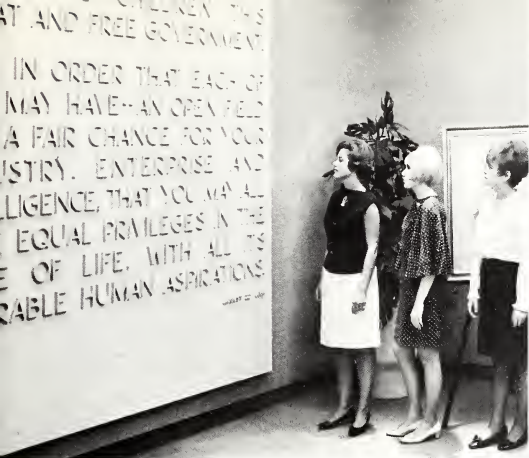 CHILDREN THIS
AT AND FREE GOVERNMENT.
IN ORDER THAT EACH OF
MAY HAVE - AN OPEN FIELD
A FAIR CHANCE FOR YOUR
USTRY, ENTERPRISE AND
LLIGENCE, THAT YOU MAY ALL
EQUAL PRIVILEGES IN THE
E OF LIFE, WITH ALL ITS
RABLE HUMAN ASPIRATIONS.